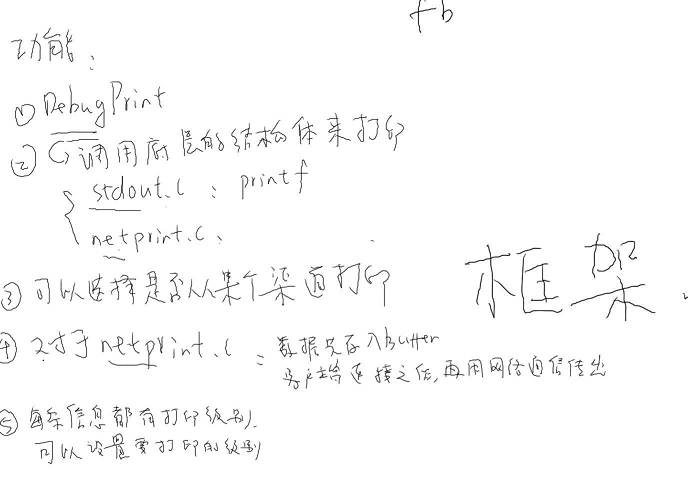 fb
功能：
① DebugPrint
② 调用底层的结构体来打印
stdout.c : printf
netprint.c :
③ 可以选择是否从某个渠道打印
框架
④ 对于netprint.c : 数据先存入buffer
客户端连接之后,再用网络通信传出
⑤ 每条信息都有打印级别.
可以设置要打印的级别